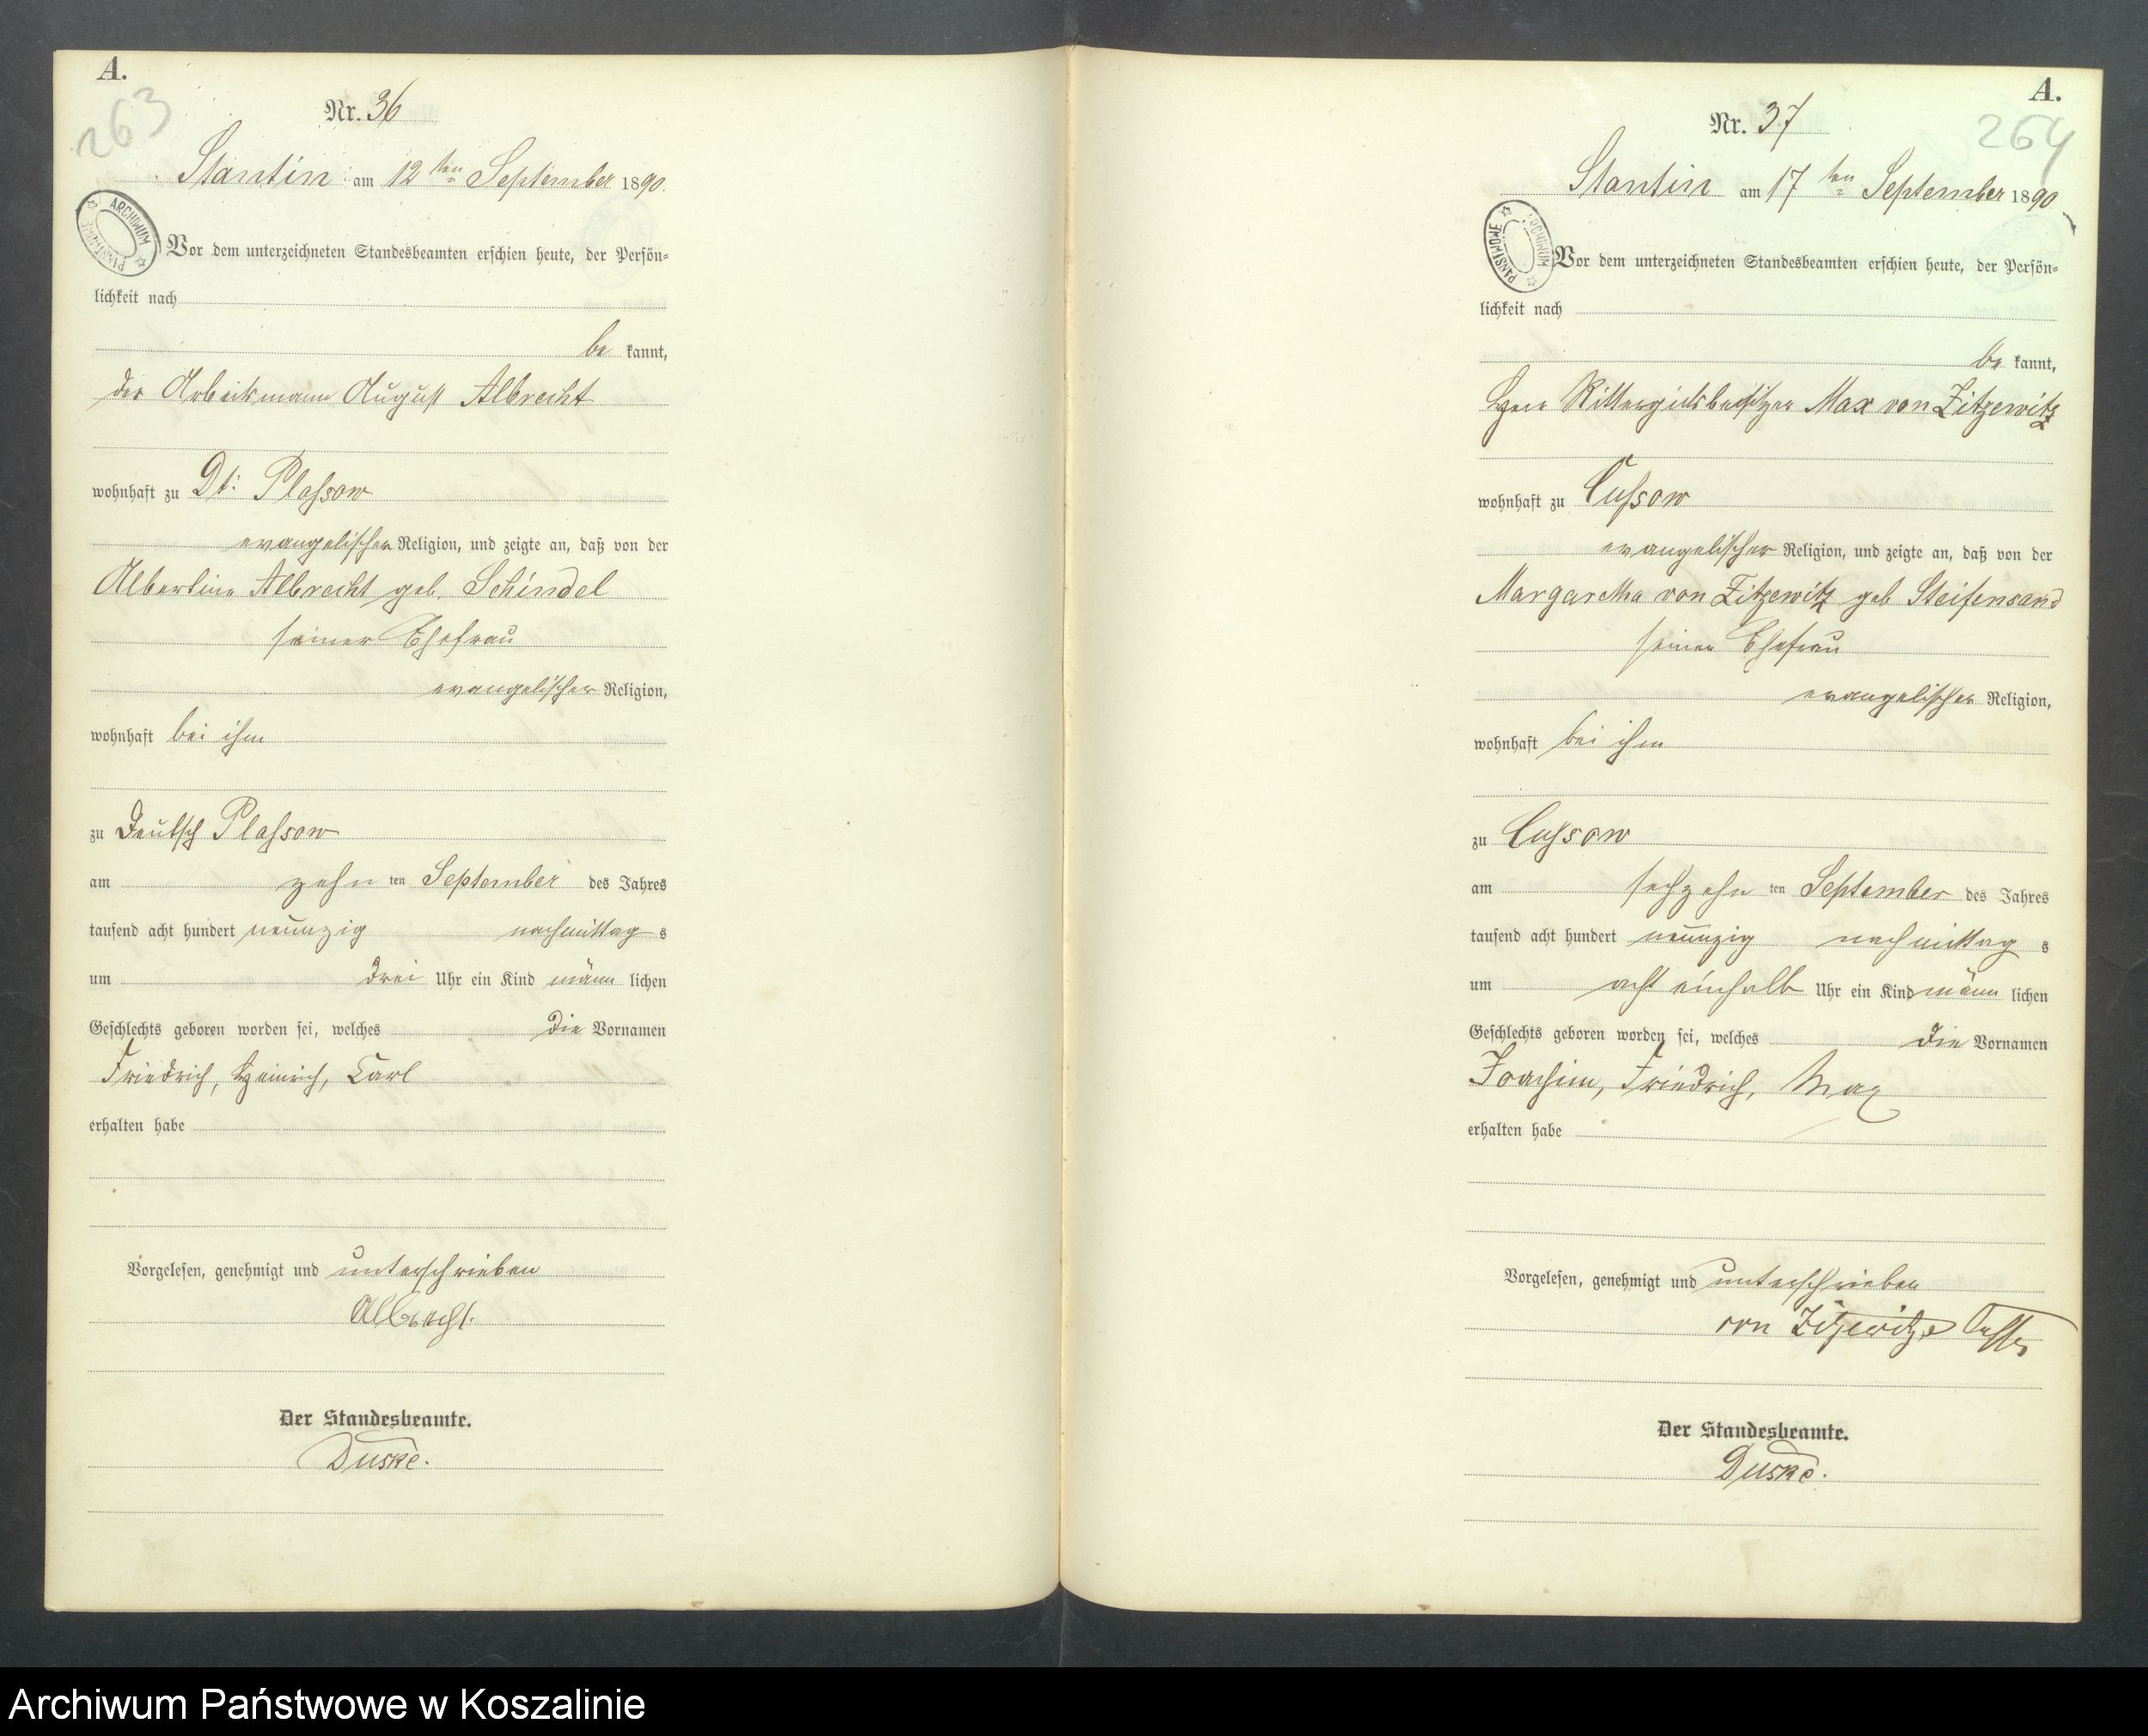 A.
263
Nr. 36
Stantin am 12ten September 1890.
ARCHIWUM PAŃSTWOWE
Vor dem unterzeichneten Standesbeamten erschien heute, der Persön-
lichkeit nach
be kannt,
der Arbeitsmann August Albrecht
wohnhaft zu Dt: Plassow
evangelischer Religion, und zeigte an, daß von der
Albertine Albrecht geb. Schindel
seiner Ehefrau
evangelischer Religion,
wohnhaft bei ihm
zu Deutsch Plassow
am zehn ten September des Jahres
tausend acht hundert neunzig nachmittag s
um drei Uhr ein Kind männ lichen
Geschlechts geboren worden sei, welches die Vornamen
Friedrich, Heinrich, Carl
erhalten habe
Vorgelesen, genehmigt und unterschrieben
Albrecht.
Der Standesbeamte.
Duske.
A.
264
Nr. 37
Stantin am 17ten September 1890
ARCHIWUM PAŃSTWOWE
Vor dem unterzeichneten Standesbeamten erschien heute, der Persön-
lichkeit nach
be kannt,
Herr Rittergutsbesitzer Max von Zitzewitz
wohnhaft zu Cussow
evangelischer Religion, und zeigte an, daß von der
Margaretha von Zitzewitz geb Steifensand
seiner Ehefrau
evangelischer Religion,
wohnhaft bei ihm
zu Cussow
am sechzehn ten September des Jahres
tausend acht hundert neunzig nachmittag s
um acht einhalb Uhr ein Kind männ lichen
Geschlechts geboren worden sei, welches die Vornamen
Joachim, Friedrich, Max
erhalten habe
Vorgelesen, genehmigt und unterschrieben
von Zitzewitz
Der Standesbeamte.
Duske.
Archiwum Państwowe w Koszalinie